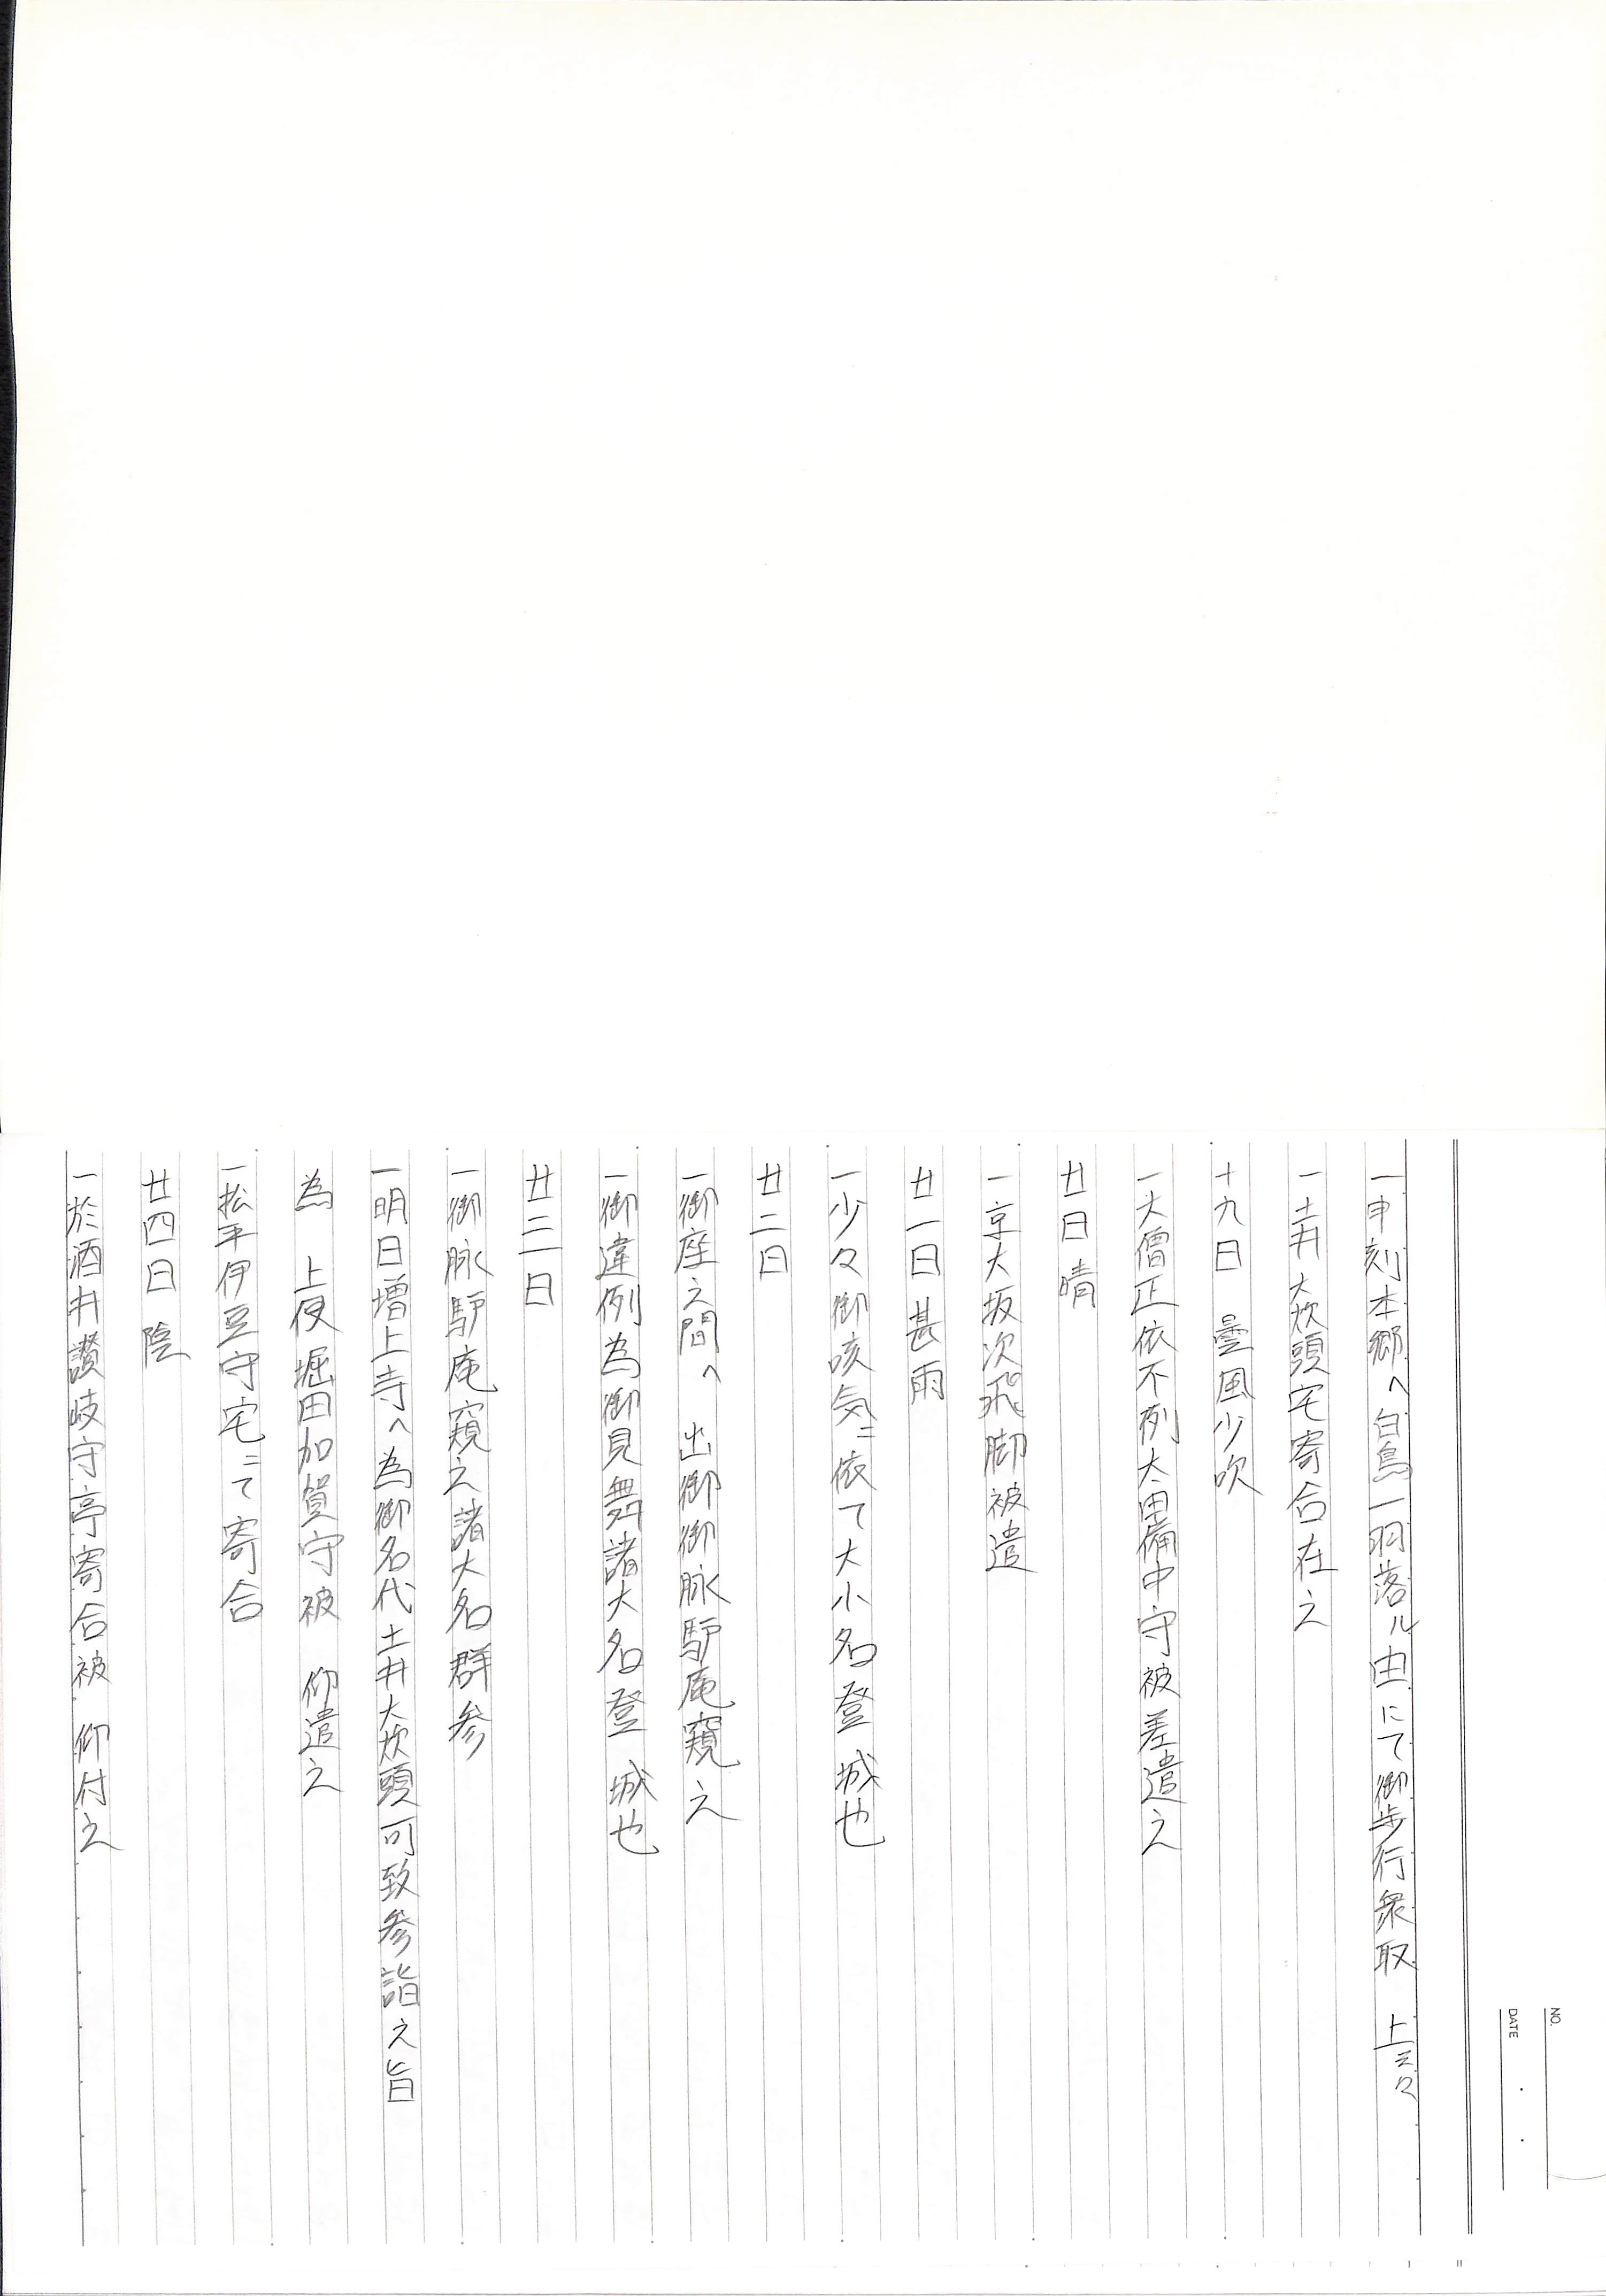 一申刻本郷へ白鳥一羽落ル由にて御歩行衆取　上云々
一土井大炊頭宅寄合在之
十九日　曇風少吹
一大僧正依不例太田備中守被差遣之
廿日　晴
一京大坂次飛脚被遣
廿一日　甚雨
一少々御咳気ニ依て大小名登　城也
廿二日
一御座之間へ　出御御脉驢庵窺之
一御違例為御見舞諸大名登　城也
廿三日
一御脉驢庵窺之諸大名群参
一明日増上寺へ為御名代土井大炊頭可致参詣之旨
為　上使堀田加賀守被　仰遣之
一松平伊豆守宅ニて寄合
廿四日　陰
一於酒井讃岐守亭寄合被　仰付之
NO.
DATE